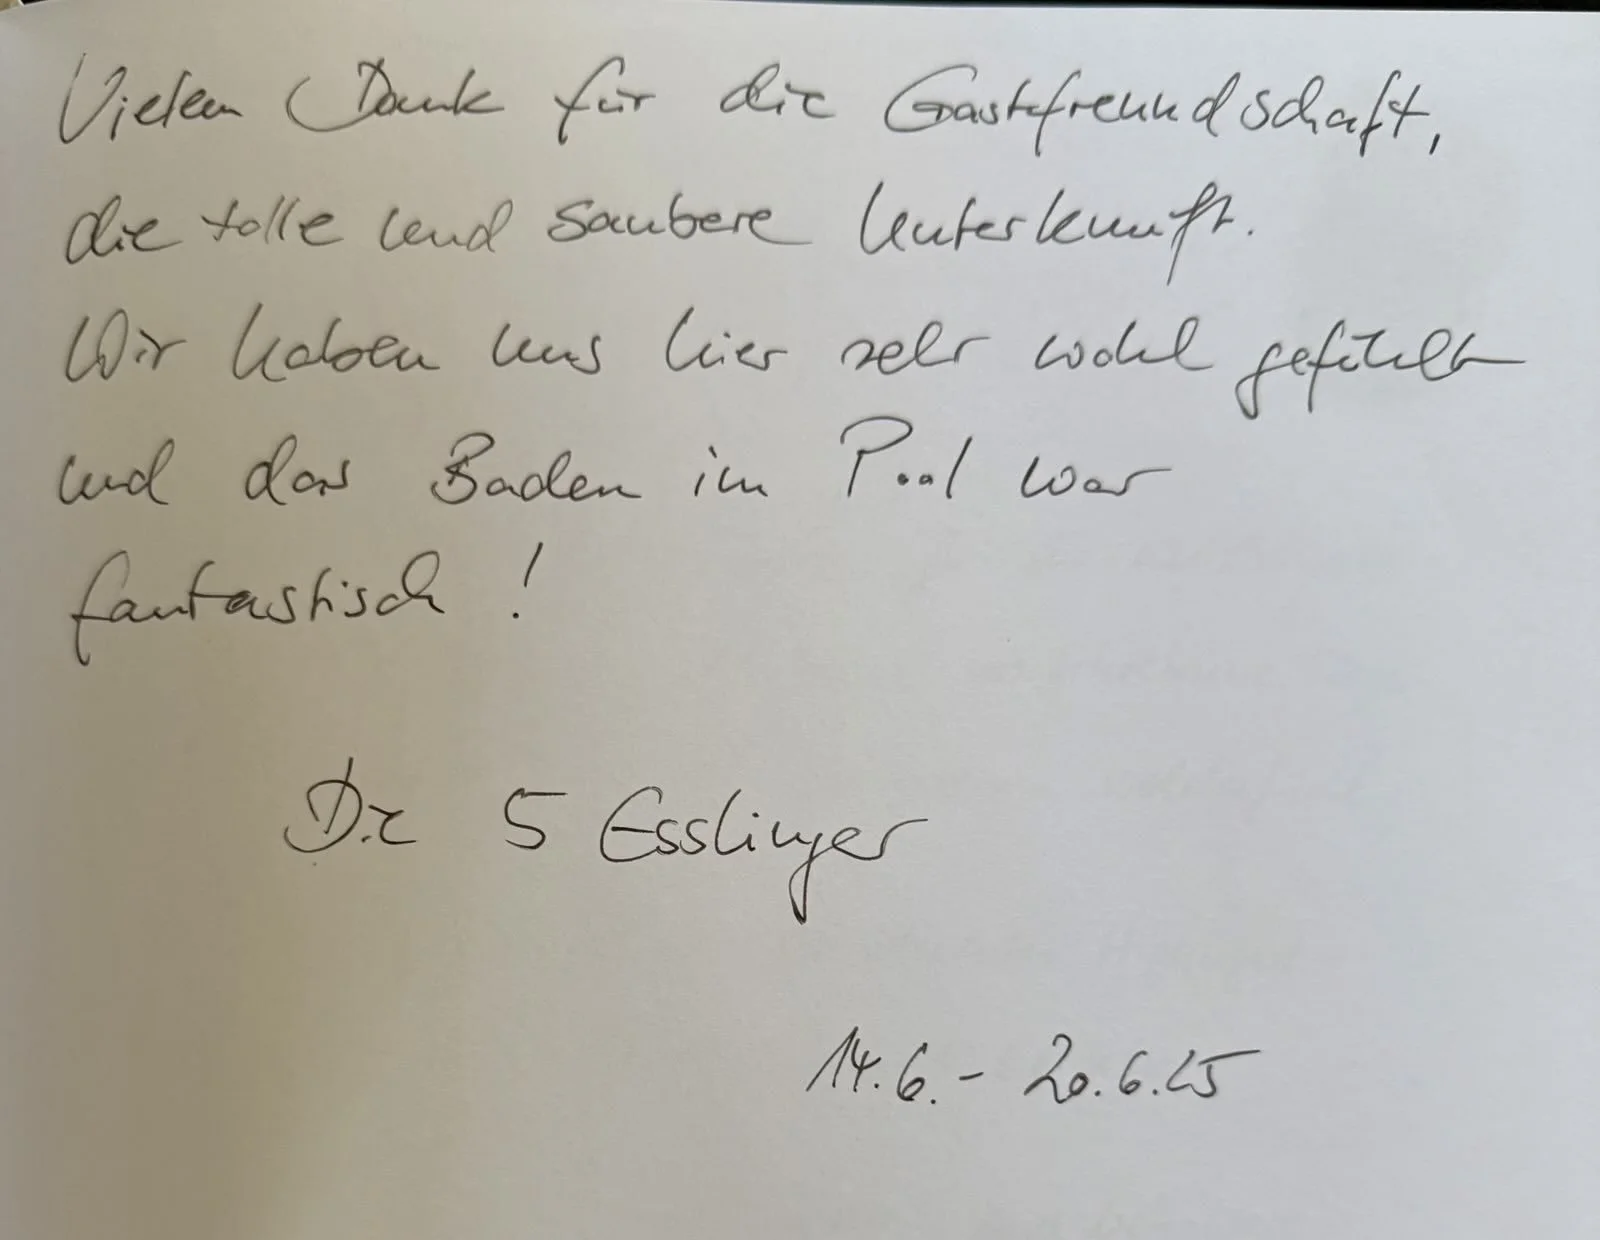 Vielen Dank für die Gastfreundschaft,
die tolle und saubere Unterkunft.
Wir haben uns hier sehr wohl gefühlt
und das Baden im Pool war
fantastisch!
Die 5 Esslinger
14.6. - 20.6.25